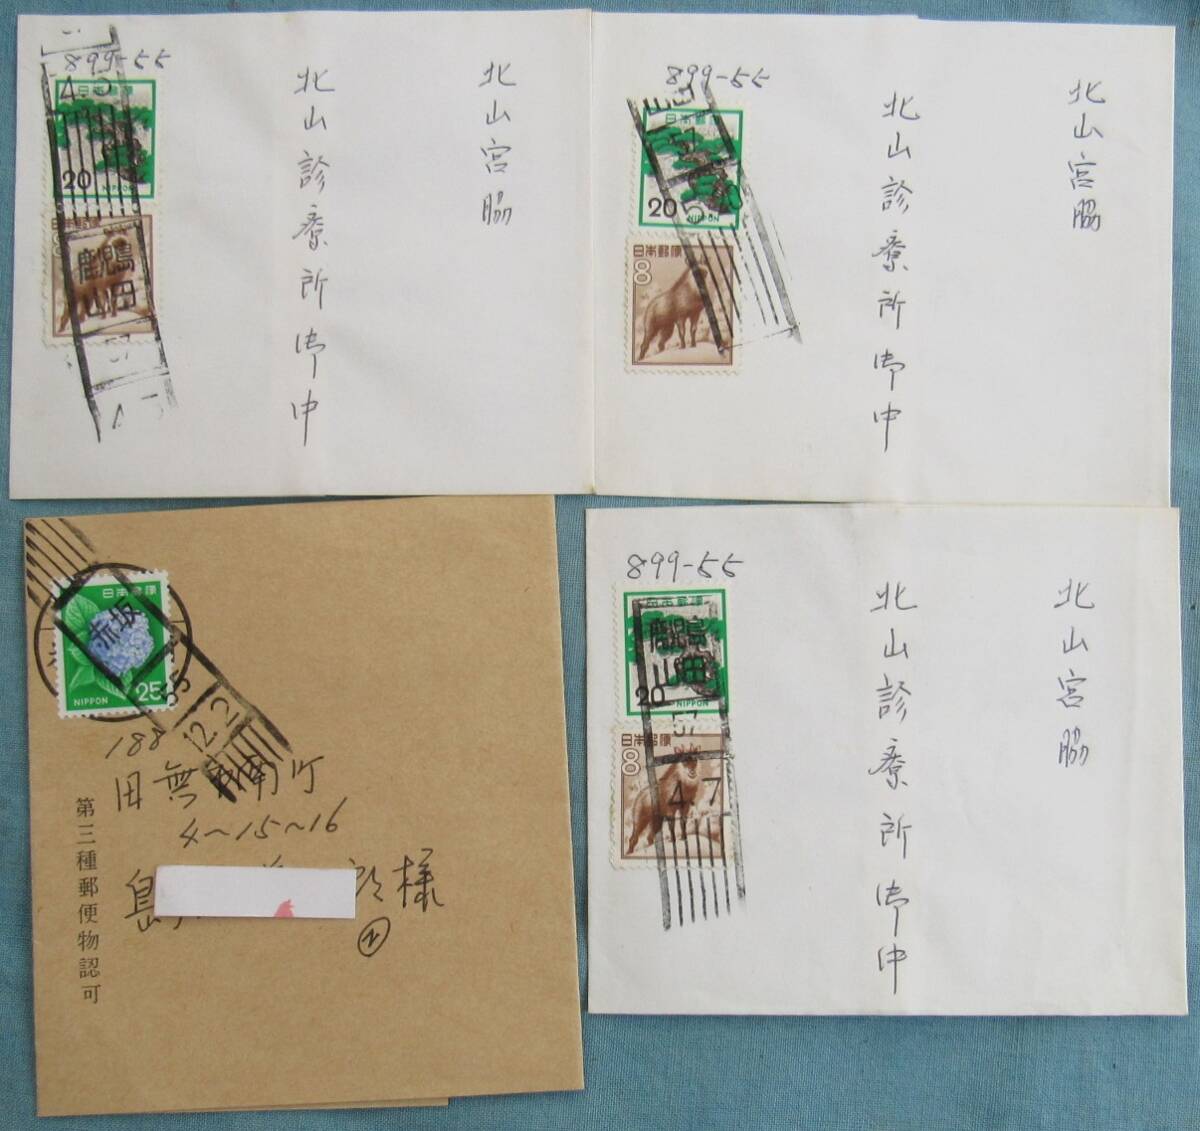 899-55
日本郵便
20
NIPPON
鹿児島
山田
57
北山診療所御中
北山宮脇
899-55
日本郵便
20
NIPPON
日本郵便
8
北山診療所御中
北山宮脇
日本郵便
25
NIPPON
赤坂
55
12.2
188
田無市南町
4~15~16
島
様
2
第三種郵便物認可
899-55
日本郵便
20
鹿児島
山田
57
4.7
日本郵便
8
北山診療所御中
北山宮脇